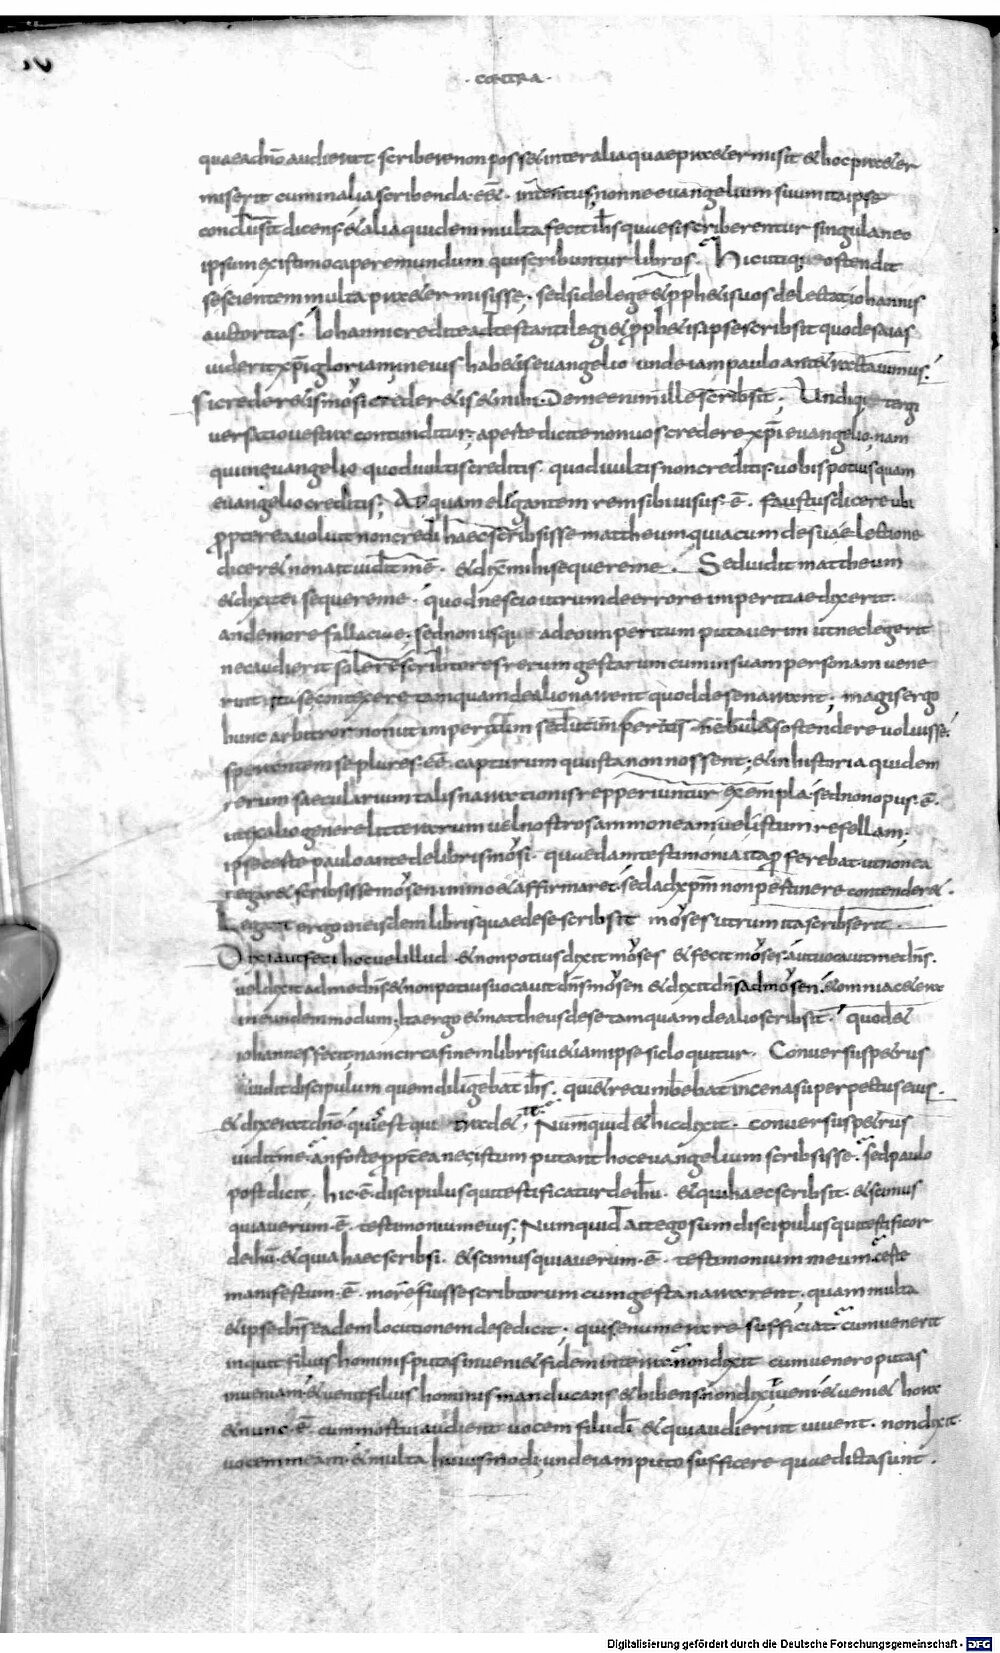 · CONTRA ·
quae a dnō audierat scribere non posset inter alia quae praetermisit & hoc praeter
miserit cum in alia scribenda eēt · intentus; nonne euangelium suum ita ipse
conclusit dicens & alia quidem multa fecit ihs quae si scriberentur singula nec
ipsum existimo capere mundum qui scribuntur libros. Hic utique ostendit
se scientem multa praetermisisse; sed si de lege & proph&is uos delectat iohannis
auctoritas. Iohanni credite adtestanti legi & proph&is ipse scribsit quod esaias
uiderit xpi gloriam; in eius hab&is euangelio unde iam paulo ante tractauimus;
Si credereris mosi creder&is & mihi. De me enim ille scribsit. Undique tergi
uersatio uestra contunditur; aperte dicite non uos credere xpi euangelio nam
qui in euangelio quod uultis creditis. quod uultis non creditis. uobis potius quam
euangelio creditis; Ad quam elegantem rem sibi uisus · ē · faustus dicere ubi
propterea uoluit non credi haec scribsisse mattheum quia cum de suae lectione
dicer& non ait uidit me. & dixit mihi sequere me. Sed uidit mattheum
& dixit ei sequere me. quod nescio utrum de errore imperitiae dixerit.
an de more fallaciae; sed non usque adeo imperitum putauerim ut nec legerit
nec audierit solere scribtores rerum gestarum cum in suam personam uene
rint ita se contexere tamquam de alio narrent quod de se narrant; magis ergo
hunc arbitror non ut imperitum sed ut imperitis nebulas ostendere uoluisse;
sperantem se plures · eē · capturum qui ista non nossent; & in historia quidem
rerum saecularium talis narrationis repperiuntur exempla · sed non opus · ē ·
ut ex alio genere litterarum uel nostros ammoneam uel istum refellam;
ipse certe paulo ante de libris mosi · quaedam testimonia ita proferebat ut non ea
negar& scribsisse mosen immo & affirmaret · sed ad xpm non pertinere contender& ·
Legant ergo in eisdem libris quae de se scribsit moses utrum ita scribserit ·
Dixi aut feci hoc uel illud · & non potius dixit moses & fecit moses · aut uocauit me dns ·
uel dixit ad me dns & non potius uocauit dns mosen & dixit dns ad mosen & omnia cetera
in eundem modum; Ita ergo & mattheus de se tamquam de alio scribsit · quod &
iohannes fecit nam circa finem libri sui etiam ipse sic loquitur · Conuersus petrus
uidit discipulum quem diligebat ihs · qui & recumbebat in cena super pectus eius ·
& dixerat dnō · quis est qui tradet te; Numquid & hic dixit · conuersus petrus
uidit me · an forte propterea nec istum putant hoc euangelium scribsisse · sed paulo
post dicit · hic · ē · discipulus qui testificatur de ihu · & qui haec scribsit · & scimus
quia uerum · ē · testimonium eius; Numquid ait ego sum discipulus qui testificor
de ihu · & qui haec scribsi · & scimus quia uerum · ē · testimonium meum certe
manifestum · ē · morē fuisse scribtorum cum gesta narrarent; quam multa
& ipse dns eadem locutionem de se dicit; quis enumerare sufficiat · cum uenerit
inquit filius hominis putas inueni& fidem in terra non dixit cum uenero putas
inueniam · & uenit filius hominis manducans & bibens non dixit ueni · & ueni& hora
& nunc · ē · cum mortui audient uocem filii di & qui audierint uiuent · non dixit
uocem meam · & multa huiusmodi; unde iam puto sufficere quae dicta sunt ·
Digitalisierung gefördert durch die Deutsche Forschungsgemeinschaft - DFG